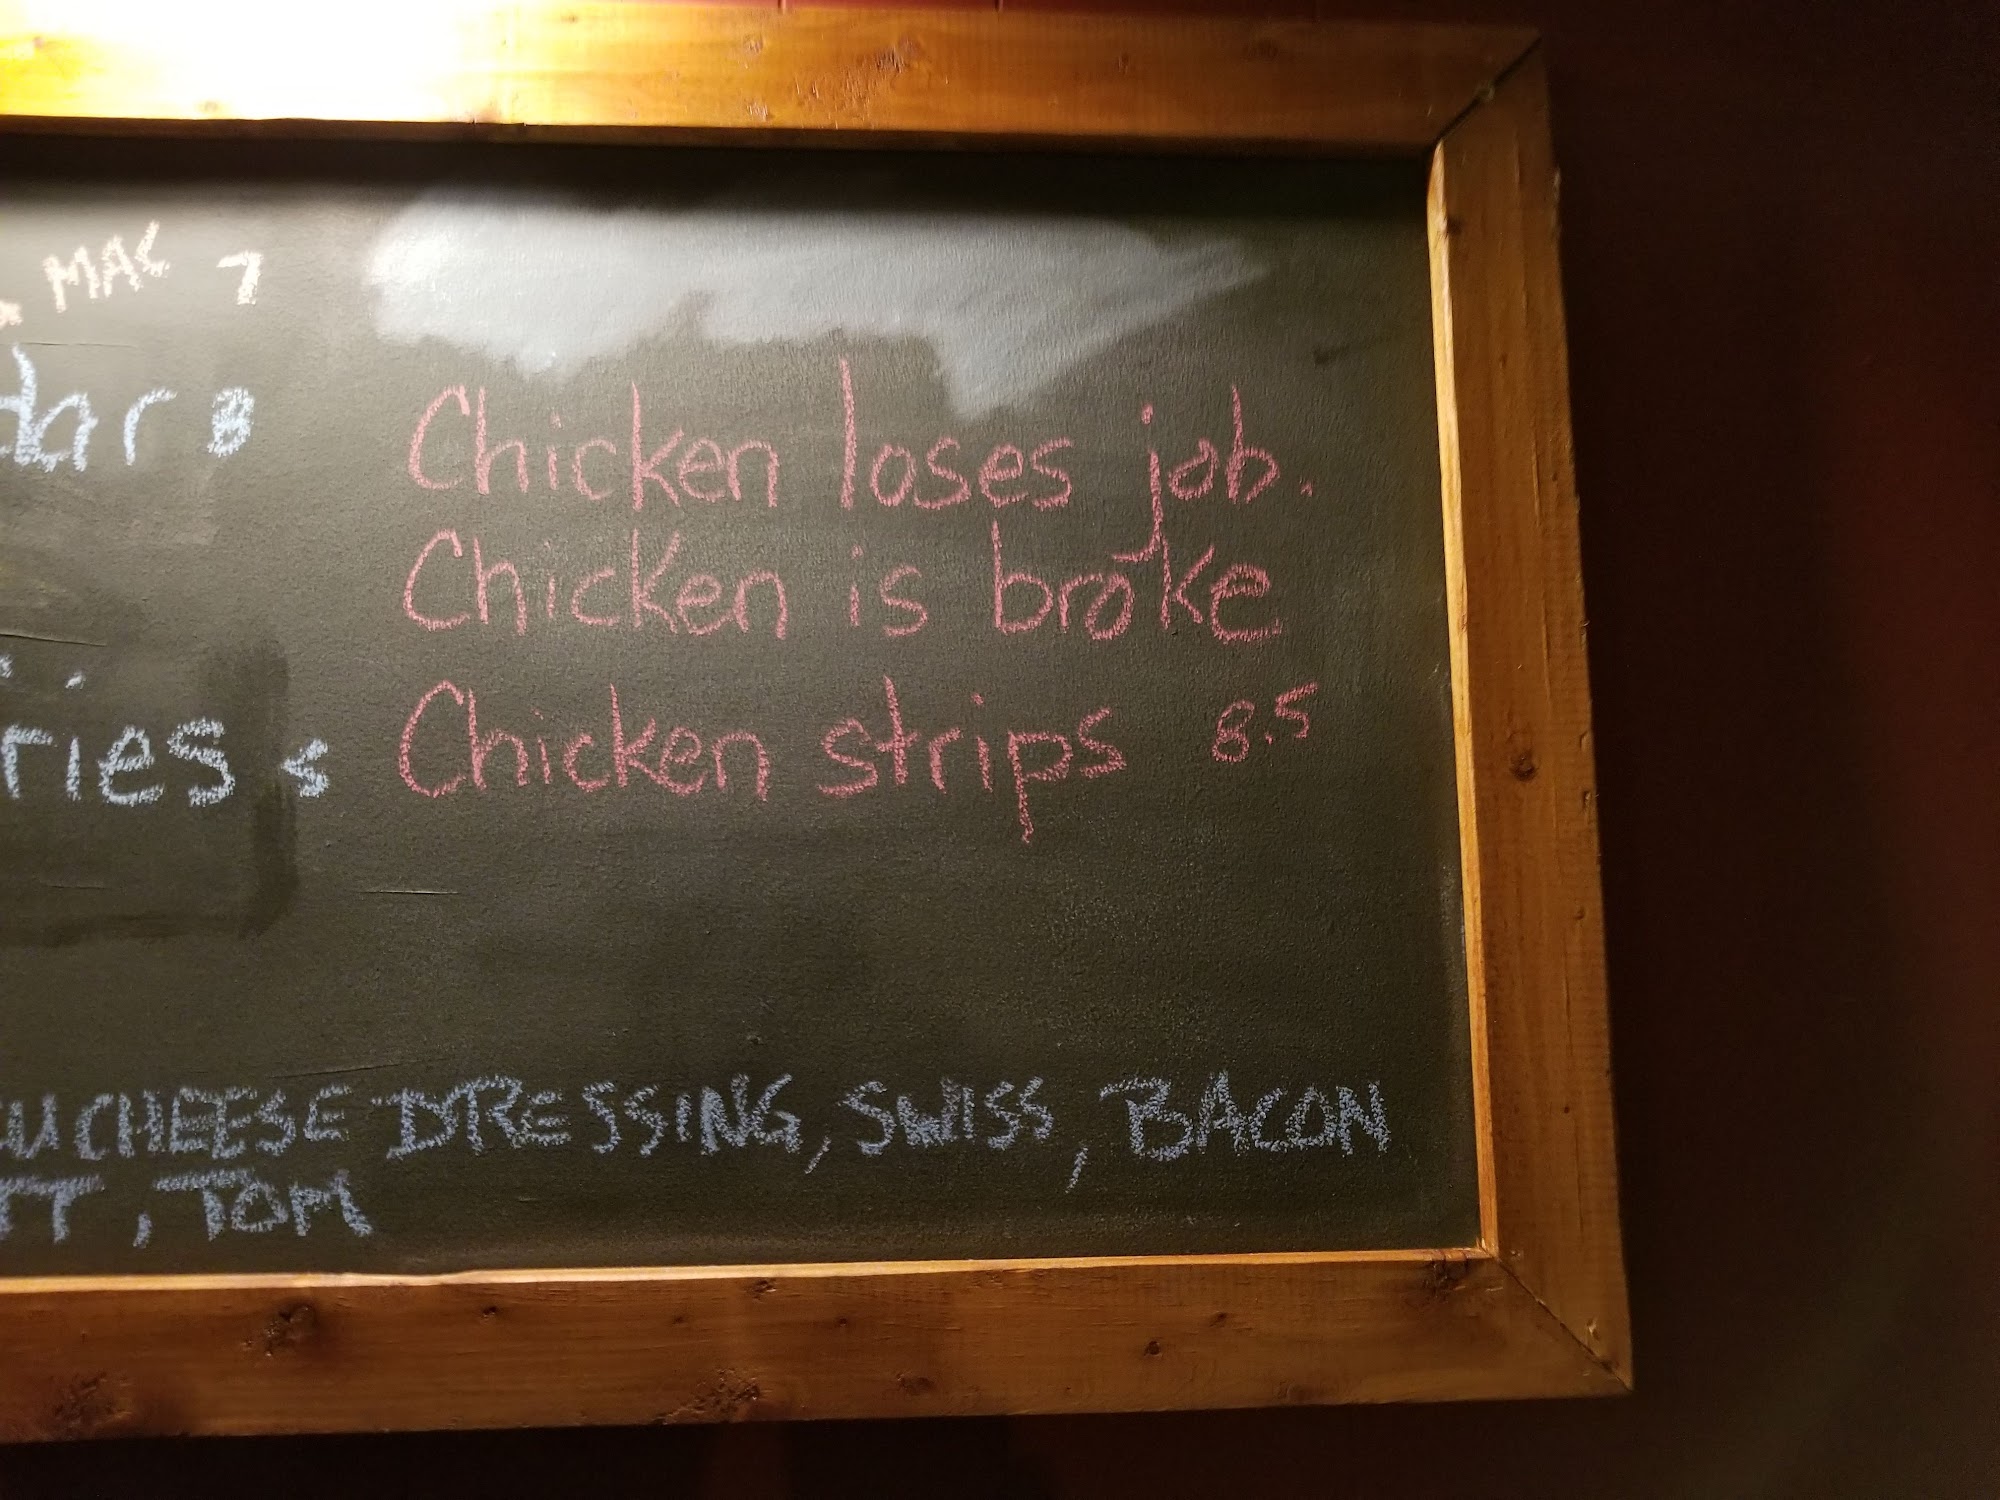 MAC 7
8
Chicken loses job.
Chicken is broke
Chicken strips 8.5
CHEESE DRESSING, SWISS, BACON
, TOM